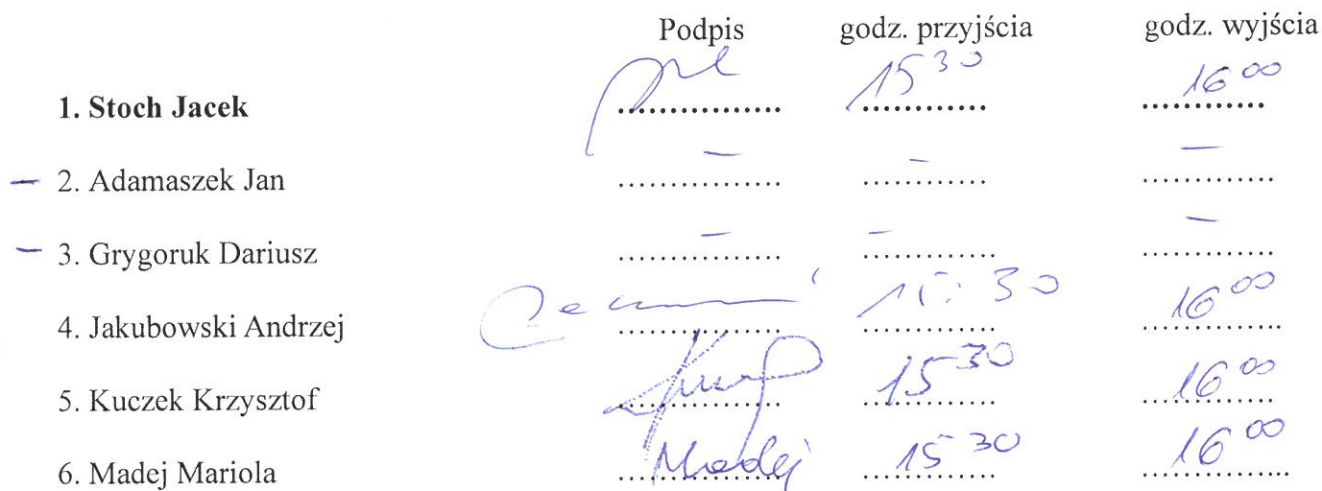 Podpis godz. przyjścia godz. wyjścia
1. Stoch Jacek ............... 15 30 ............ 16 00 ............
— 2. Adamaszek Jan – ................ – ............. – ..............
— 3. Grygoruk Dariusz – ................ – .............. – ..............
4. Jakubowski Andrzej ................ 15:30 .............. 16 00 ...............
5. Kuczek Krzysztof ................ 15 30 .............. 16 00 ..............
6. Madej Mariola Madej ................ 15 30 .............. 16 00 ................